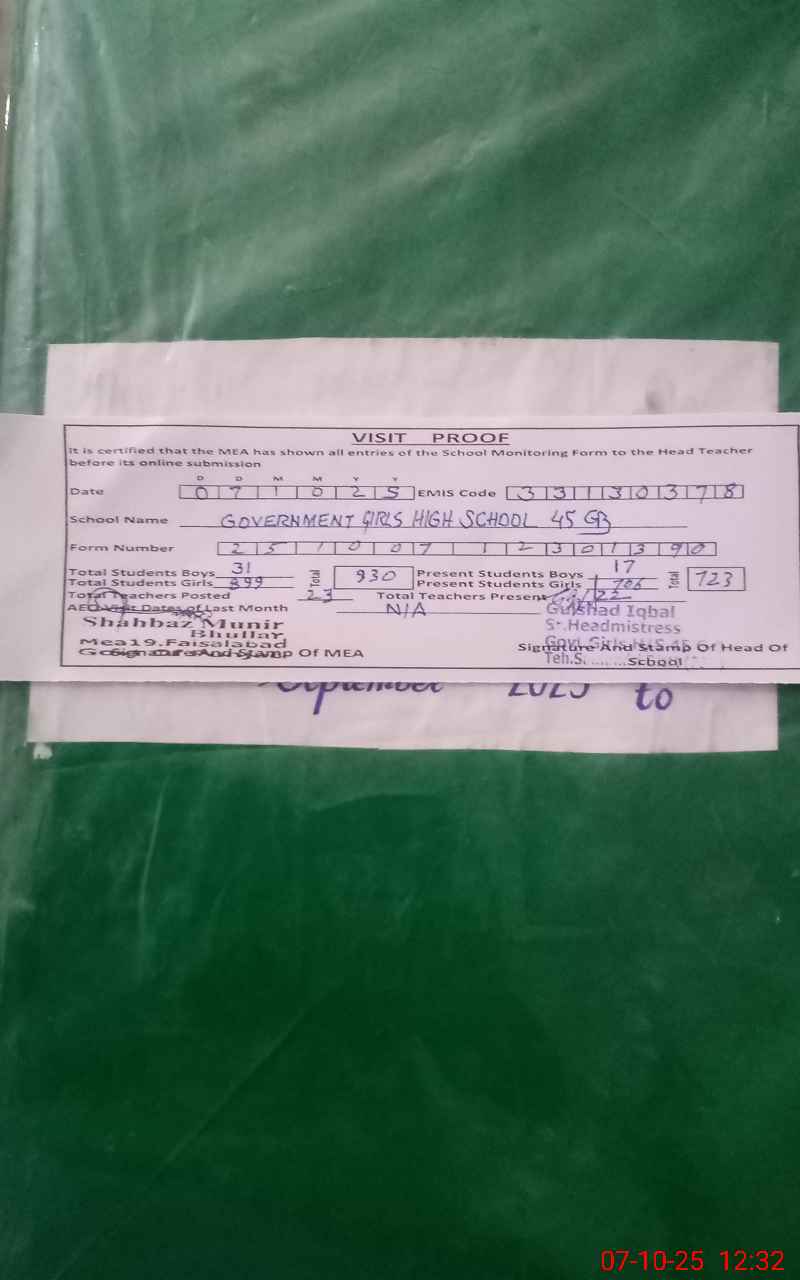 VISIT PROOF
It is certified that the MEA has shown all entries of the School Monitoring Form to the Head Teacher
before its online submission
D D M M Y Y
Date 0 7 1 0 2 5 EMIS Code 3 3 1 3 0 3 7 8
School Name GOVERNMENT GIRLS HIGH SCHOOL 45 GB
Form Number 2 5 1 0 0 7 1 2 3 0 1 3 9 0
Total Students Boys 31 Total 930 Present Students Boys 17 Total 723
Total Students Girls 899 Present Students Girls 706
Total Teachers Posted 23 Total Teachers Present 22
AEO Visit Dates of Last Month N/A Gulshad Iqbal
Shahbaz Munir Sr. Headmistress
Bhullar
Mea19.Faisalabad Govt. Girls
Signature And Stamp Of MEA Signature And Stamp Of Head Of
Teh.S. School
September 2025 to
07-10-25 12:32